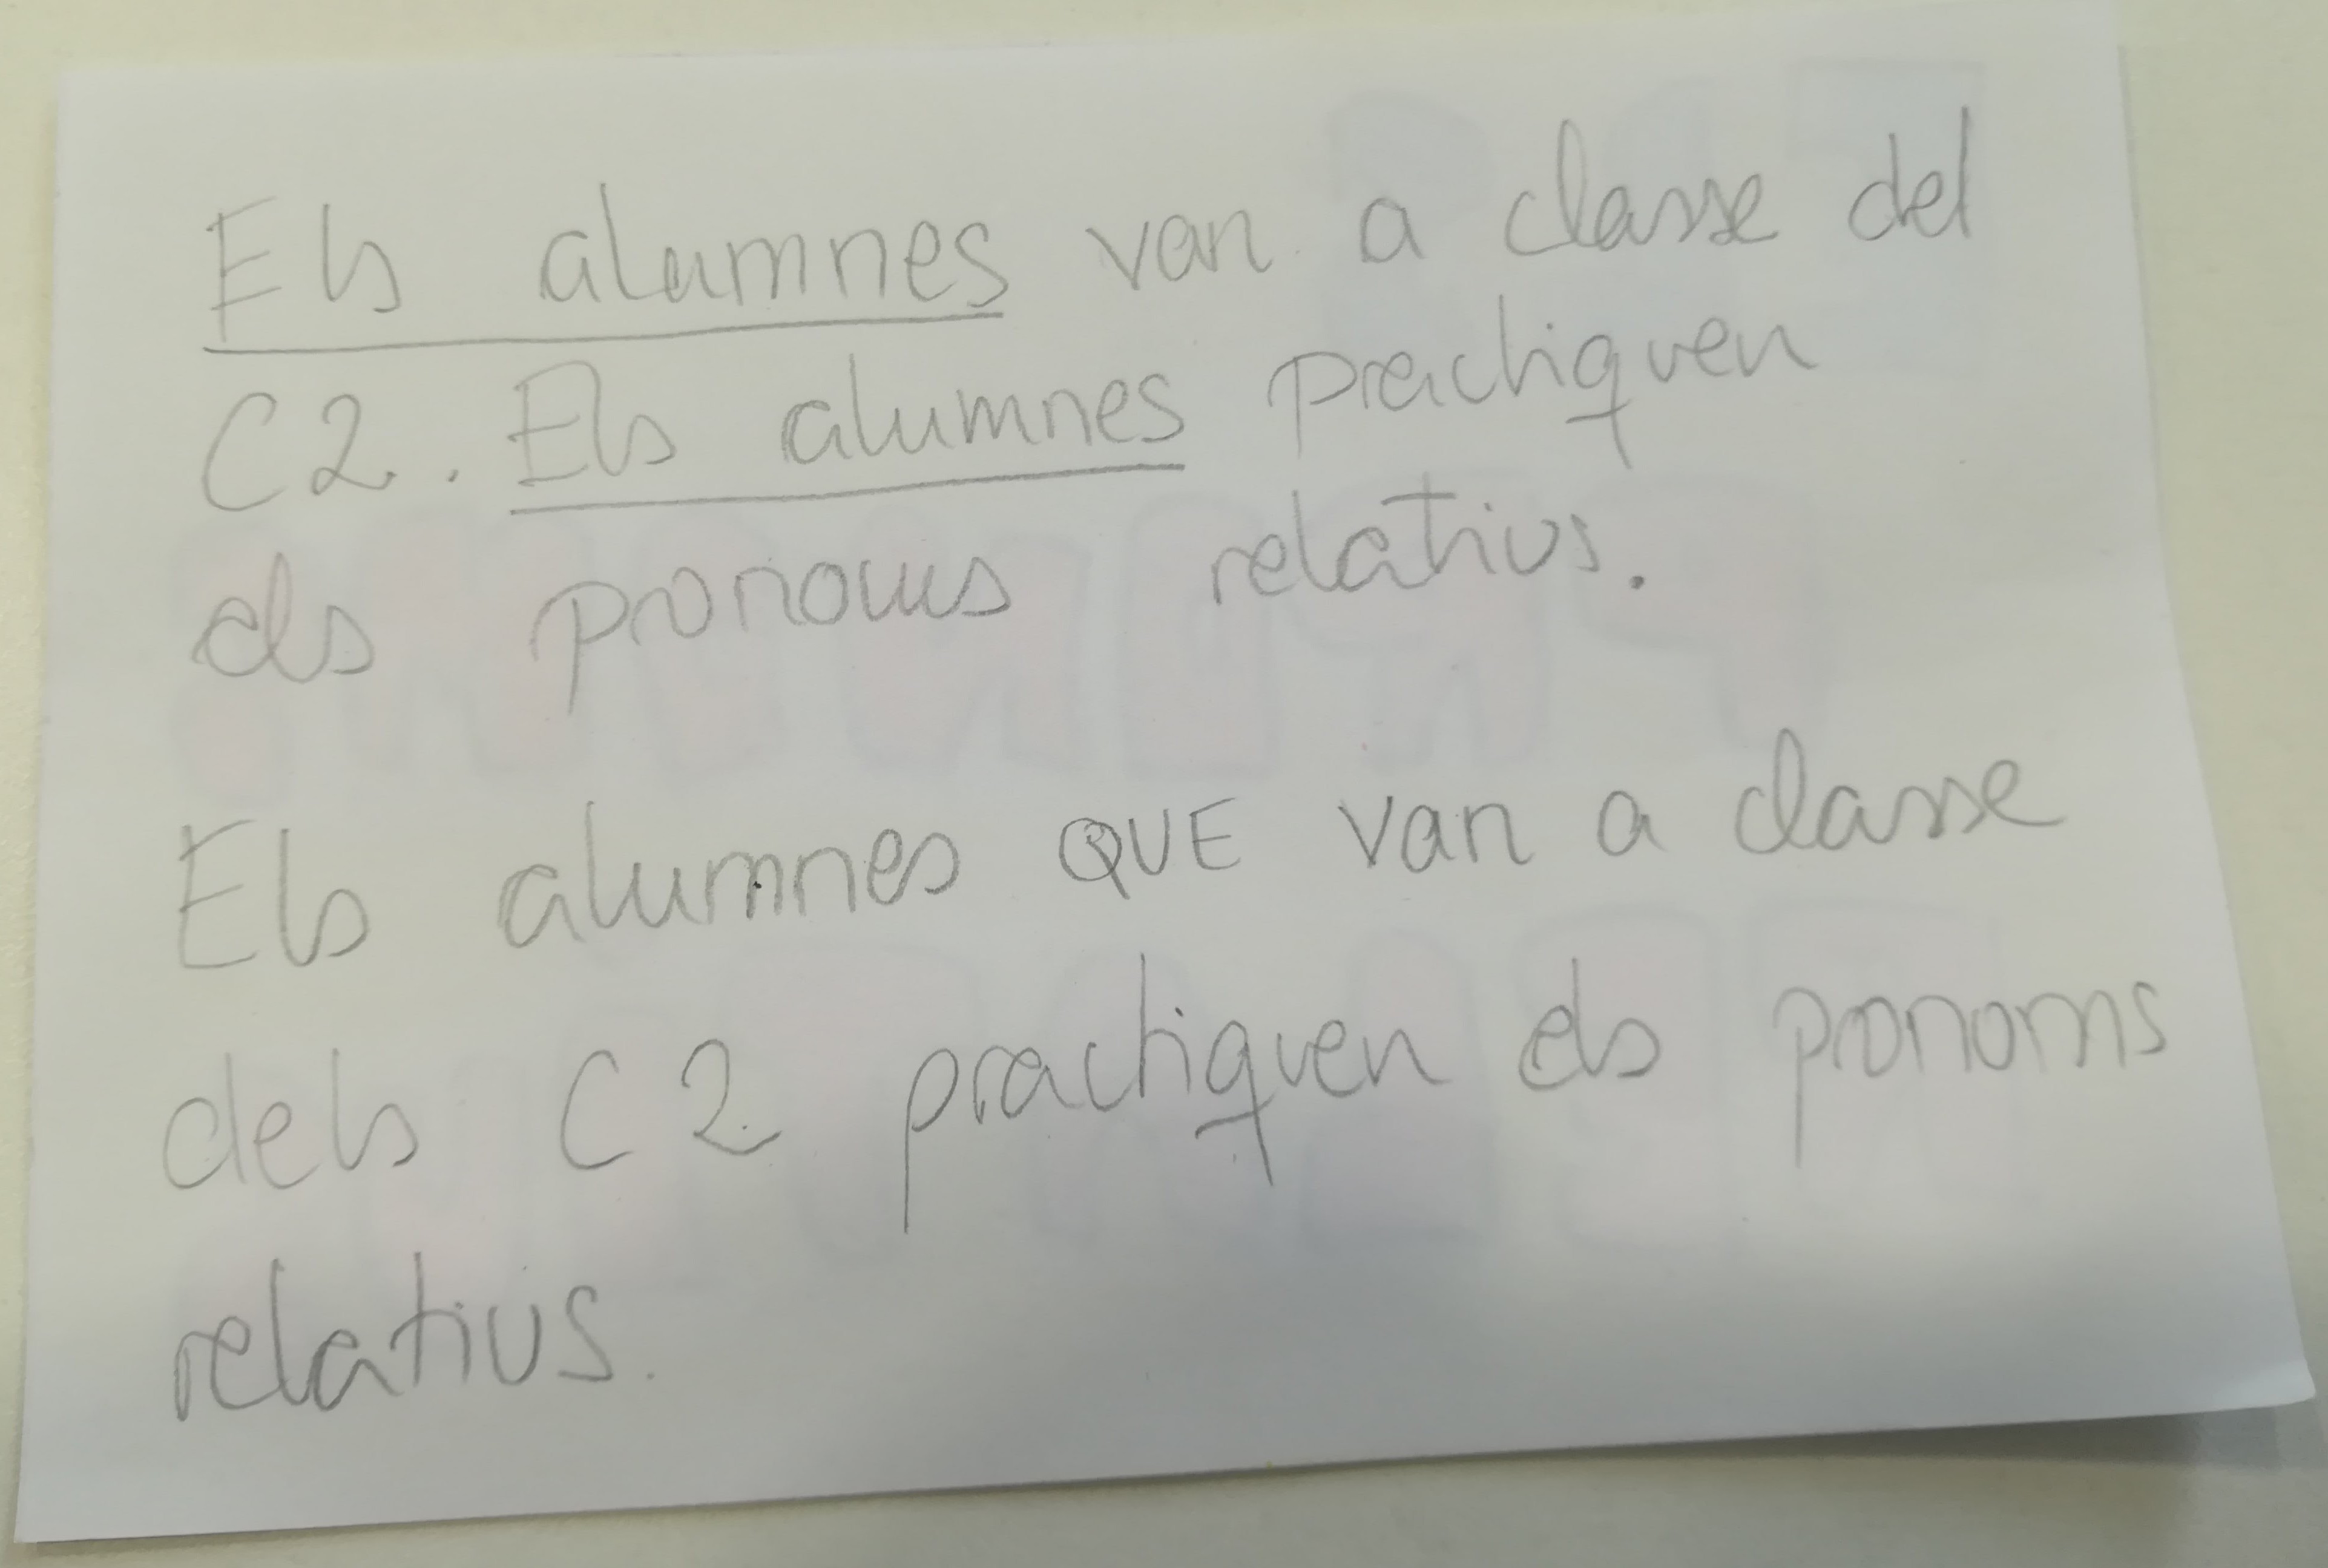 Els alumnes van a classe del
C2. Els alumnes practiquen
els pronoms relatius.
Els alumnes QUE van a classe
dels C2 practiquen els pronoms
relatius.